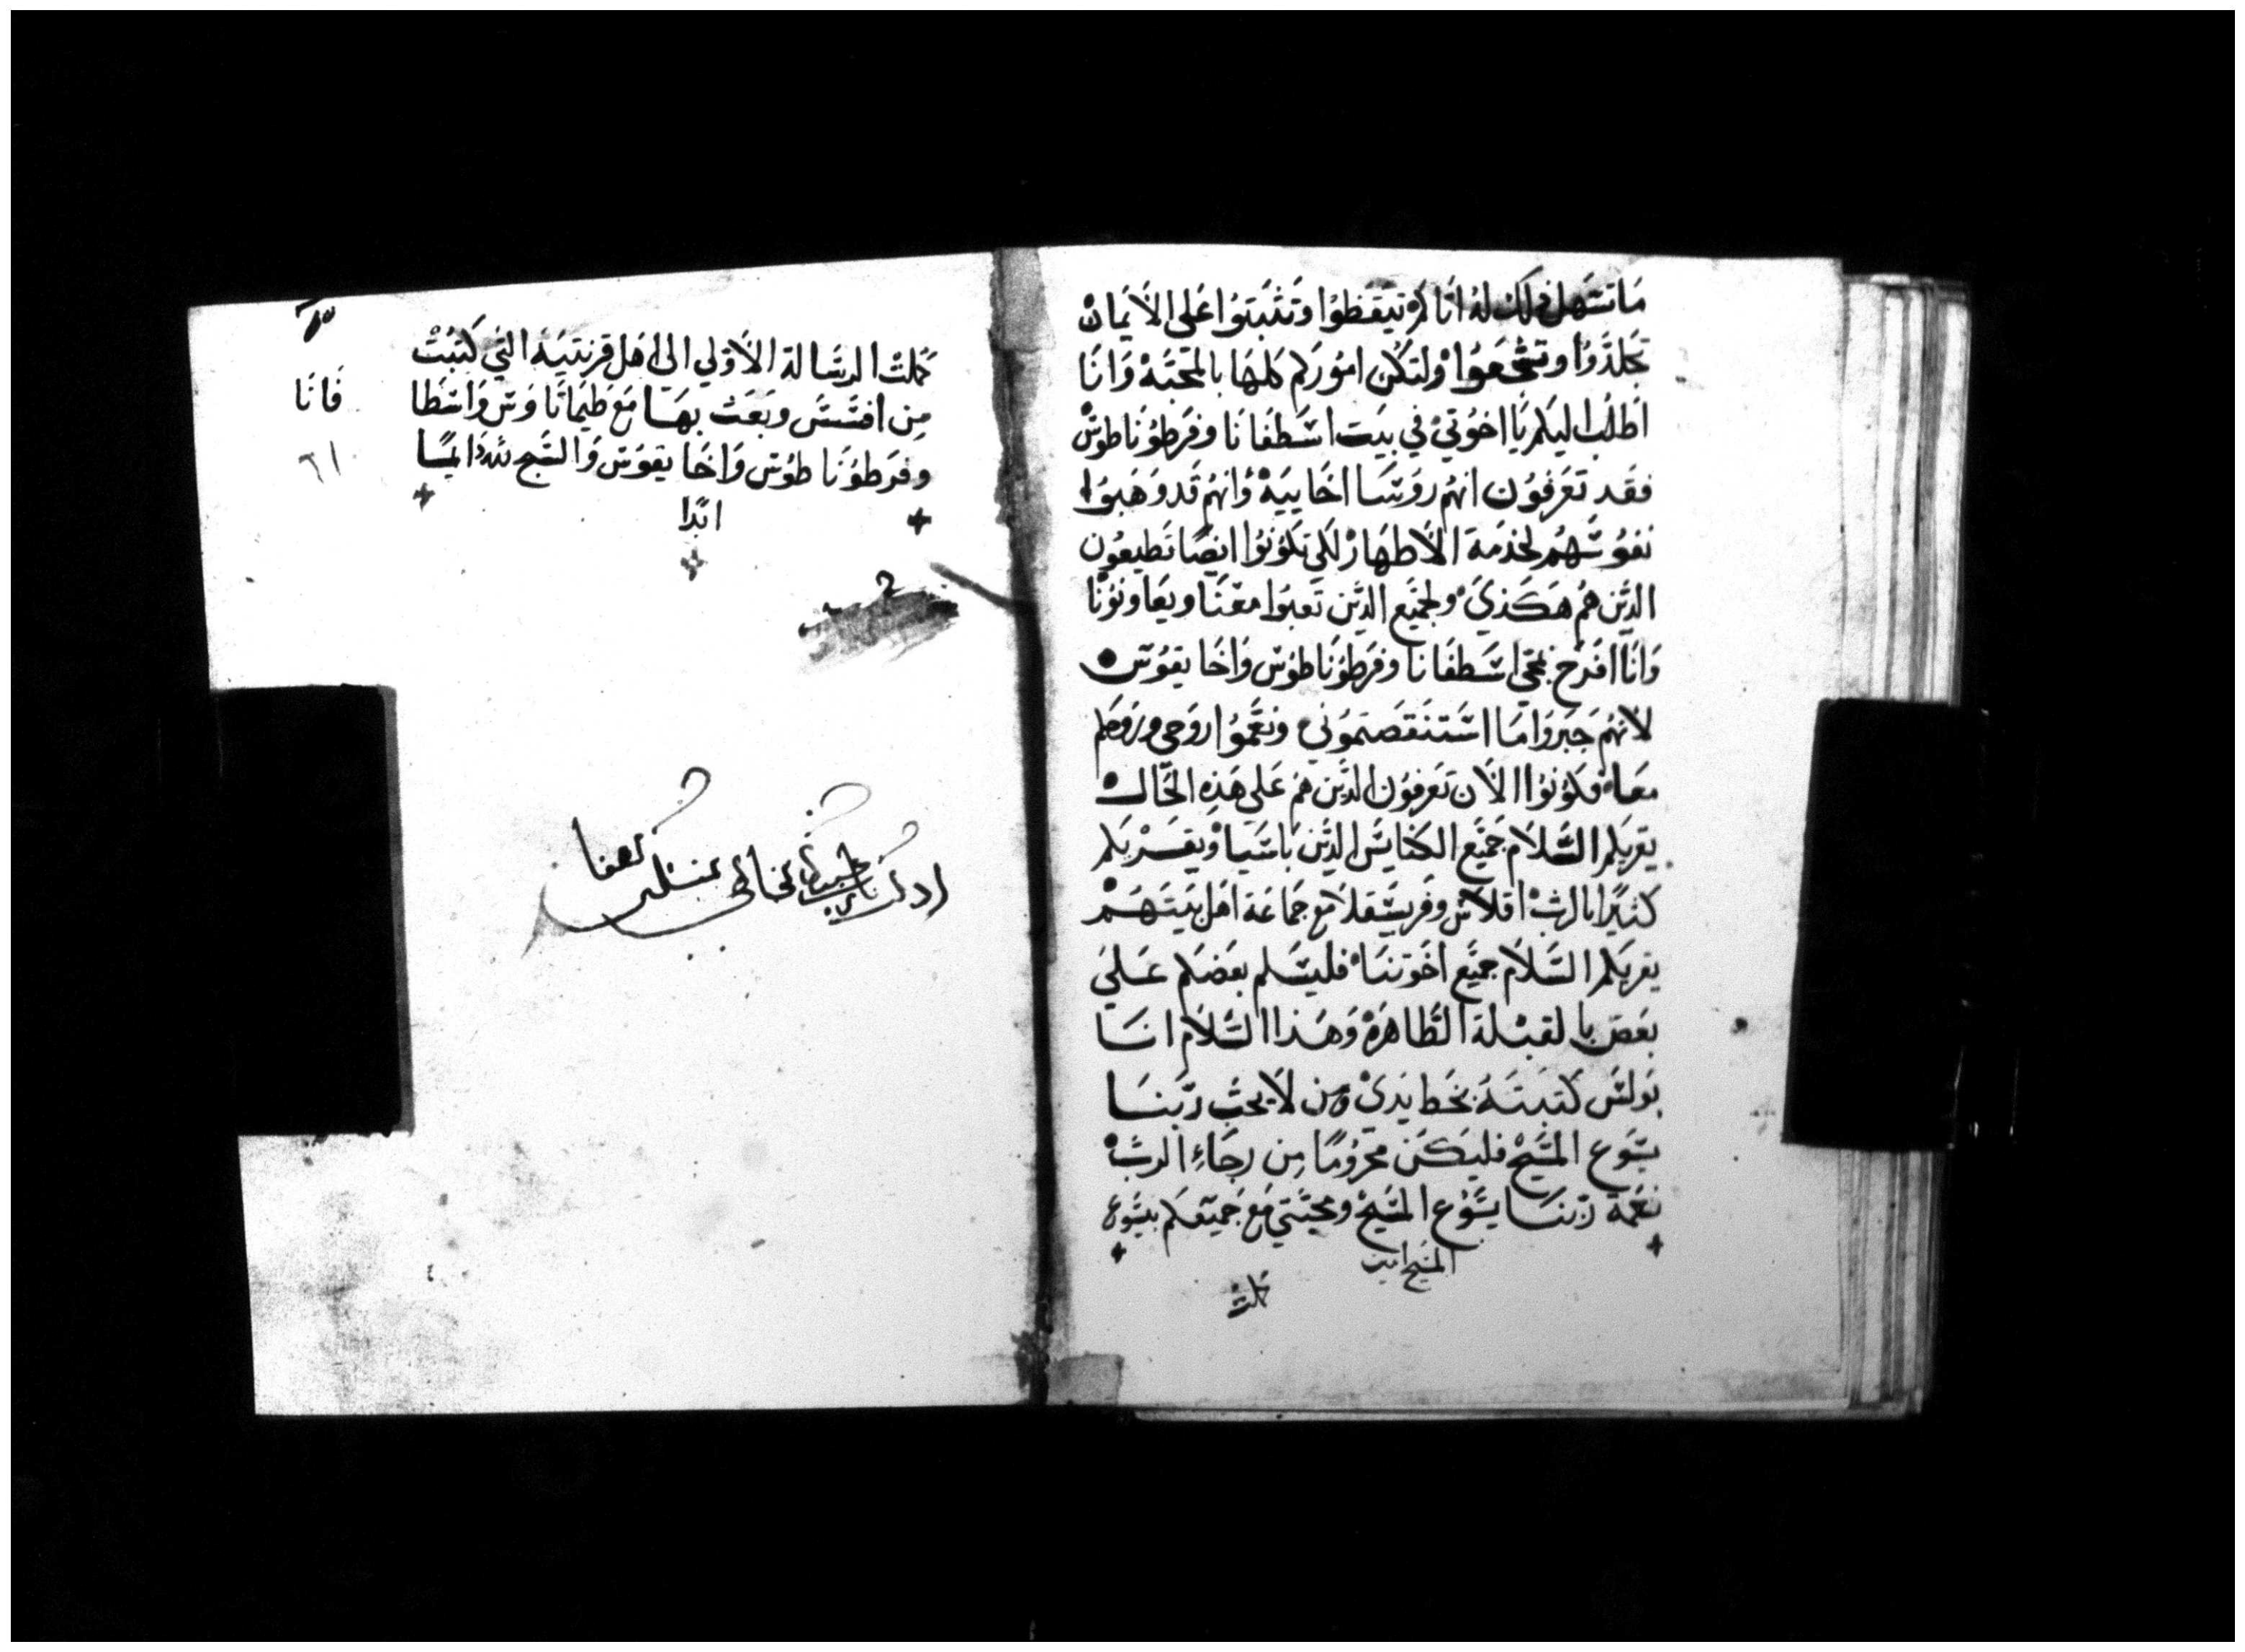 ما تسهل ذلك له انا لم تيقظوا وتثبتوا على الايمان
تجلدوا وتشجعوا ولتكن اموركم كلها بالمحبة وانا
اطلب اليكم يا اخوتي في بيت اسطفانا وفرطوناطوس
فقد تعرفون انهم روسا اخاييه وانهم قد وهبوا
نفوسهم لخدمة الاطهار لكي تكونوا ايضا تطيعون
الذين هم هكذي ولجميع الذين تعبوا معنا ويعاونونا
وانا افرح بمجي اسطفانا وفرطوناطوس واخايقوس
لانهم جبروا ما استنقصتموني ونعموا روحي وروحكم
معا فكونوا الان تعرفون الذين هم على هذه الحال
يقريكم السلام جميع الكنايس الذين باسيا ويقريكم
كثيرا بالرب اقلاس وفريسقلا مع جماعة اهل بيتهم
يقريكم السلام جميع اخوتنا فليسلم بعضكم علي
بعض بالقبلة الطاهرة وهذا السلام انا
بولس كتبته بخط يدي ومن لا يحب ربنا
يسوع المسيح فليكن محروما من رجاء الرب
نعمة ربنا يسوع المسيح ومحبتي مع جميعكم بيسوع
المسيح امين
كملت
كملت الرسالة الاولي الى اهل قرنتيه التي كتبت
من افسس وبعث بها مع طيماتاوس واسطفا
وفرطوناطوس واخايقوس والسبح لله دايما
ابدا
فانا
٦١